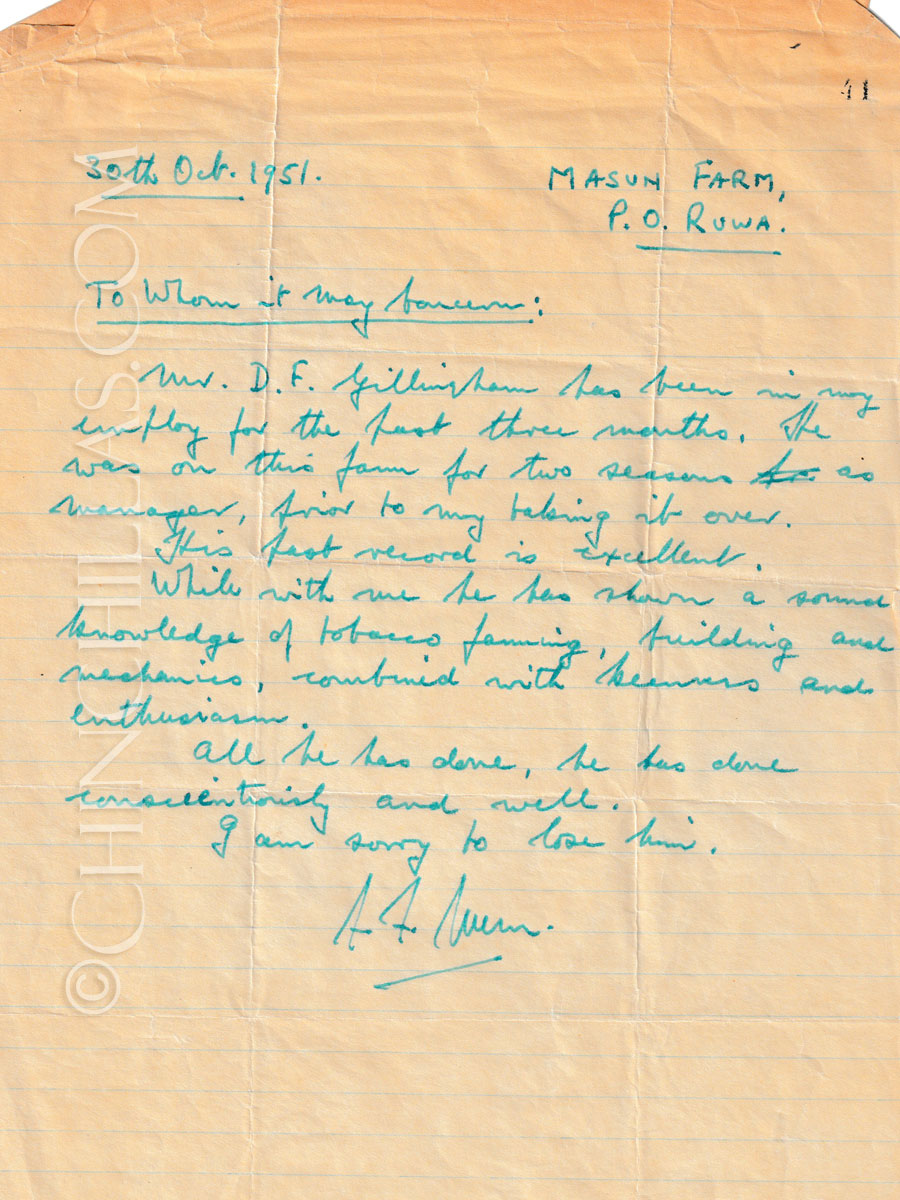 41
30th Oct. 1951.
MASUN FARM,
P.O. RUWA.
To Whom it may Concern:
Mr. D.F. Gillingham has been in my
employ for the past three months. He
was on this farm for two seasons as
manager, prior to my taking it over.
His past record is excellent.
While with me he has shown a sound
knowledge of tobacco farming, building and
mechanics, combined with keenness and
enthusiasm.
All he has done, he has done
conscientiously and well.
I am sorry to lose him.
©CHINCHILLAS.COM